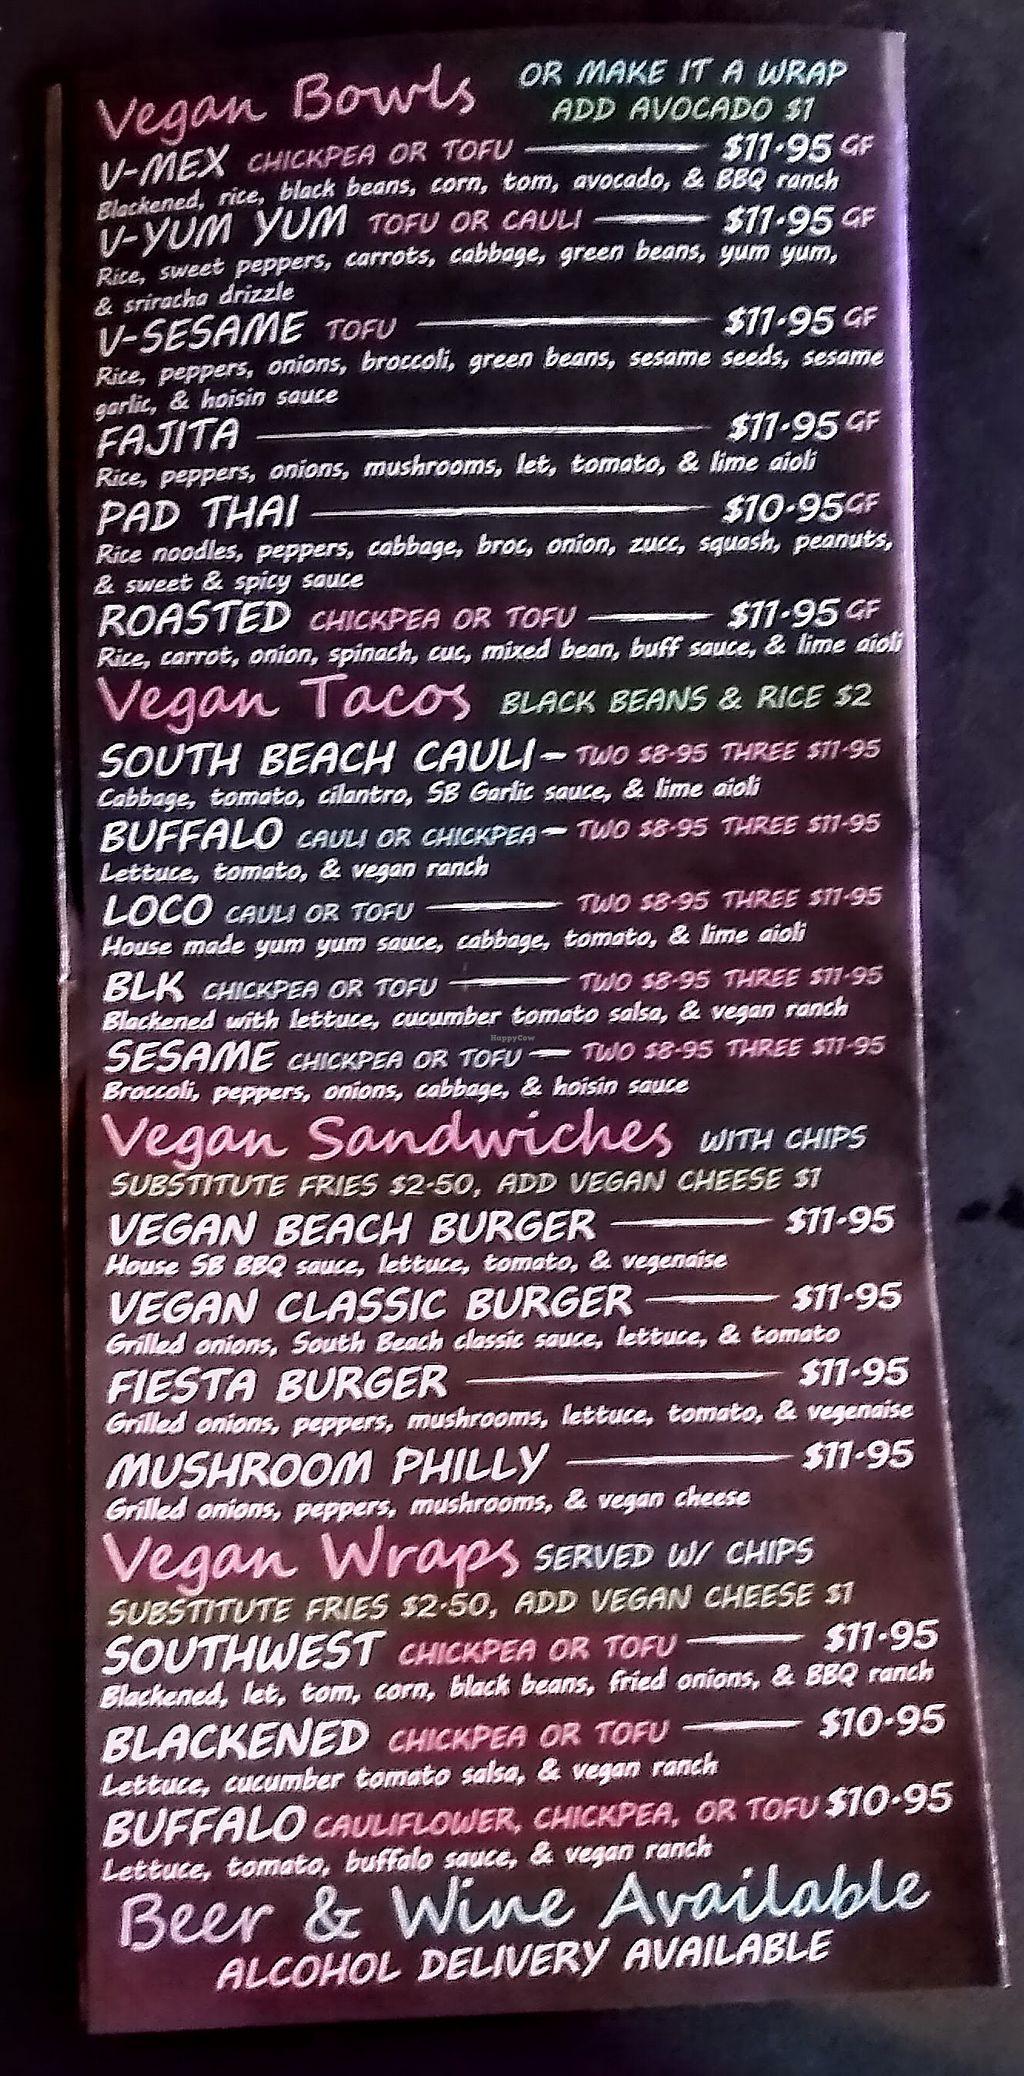 Vegan Bowls OR MAKE IT A WRAP
ADD AVOCADO $1
V-MEX CHICKPEA OR TOFU $11.95 GF
Blackened, rice, black beans, corn, tom, avocado, & BBQ ranch
V-YUM YUM TOFU OR CAULI $11.95 GF
Rice, sweet peppers, carrots, cabbage, green beans, yum yum,
& sriracha drizzle
V-SESAME TOFU $11.95 GF
Rice, peppers, onions, broccoli, green beans, sesame seeds, sesame
garlic, & hoisin sauce
FAJITA $11.95 GF
Rice, peppers, onions, mushrooms, let, tomato, & lime aioli
PAD THAI $10.95 GF
Rice noodles, peppers, cabbage, broc, onion, zucc, squash, peanuts,
& sweet & spicy sauce
ROASTED CHICKPEA OR TOFU $11.95 GF
Rice, carrot, onion, spinach, cuc, mixed bean, buff sauce, & lime aioli
Vegan Tacos BLACK BEANS & RICE $2
SOUTH BEACH CAULI – TWO $8.95 THREE $11.95
Cabbage, tomato, cilantro, SB Garlic sauce, & lime aioli
BUFFALO CAULI OR CHICKPEA – TWO $8.95 THREE $11.95
Lettuce, tomato, & vegan ranch
LOCO CAULI OR TOFU TWO $8.95 THREE $11.95
House made yum yum sauce, cabbage, tomato, & lime aioli
BLK CHICKPEA OR TOFU TWO $8.95 THREE $11.95
Blackened with lettuce, cucumber tomato salsa, & vegan ranch
HappyCow
SESAME CHICKPEA OR TOFU – TWO $8.95 THREE $11.95
Broccoli, peppers, onions, cabbage, & hoisin sauce
Vegan Sandwiches WITH CHIPS
SUBSTITUTE FRIES $2.50, ADD VEGAN CHEESE $1
VEGAN BEACH BURGER $11.95
House SB BBQ sauce, lettuce, tomato, & vegenaise
VEGAN CLASSIC BURGER $11.95
Grilled onions, South Beach classic sauce, lettuce, & tomato
FIESTA BURGER $11.95
Grilled onions, peppers, mushrooms, lettuce, tomato, & vegenaise
MUSHROOM PHILLY $11.95
Grilled onions, peppers, mushrooms, & vegan cheese
Vegan Wraps SERVED W/ CHIPS
SUBSTITUTE FRIES $2.50, ADD VEGAN CHEESE $1
SOUTHWEST CHICKPEA OR TOFU $11.95
Blackened, let, tom, corn, black beans, fried onions, & BBQ ranch
BLACKENED CHICKPEA OR TOFU $10.95
Lettuce, cucumber tomato salsa, & vegan ranch
BUFFALO CAULIFLOWER, CHICKPEA, OR TOFU $10.95
Lettuce, tomato, buffalo sauce, & vegan ranch
Beer & Wine Available
ALCOHOL DELIVERY AVAILABLE